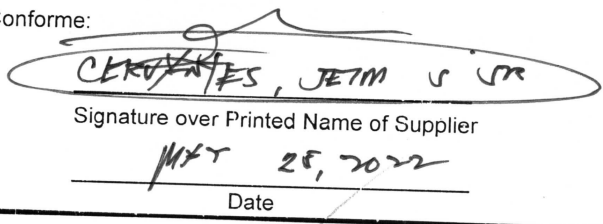 Conforme:
CERVANTES, JETM S SR
Signature over Printed Name of Supplier
MAY 25, 2022
Date